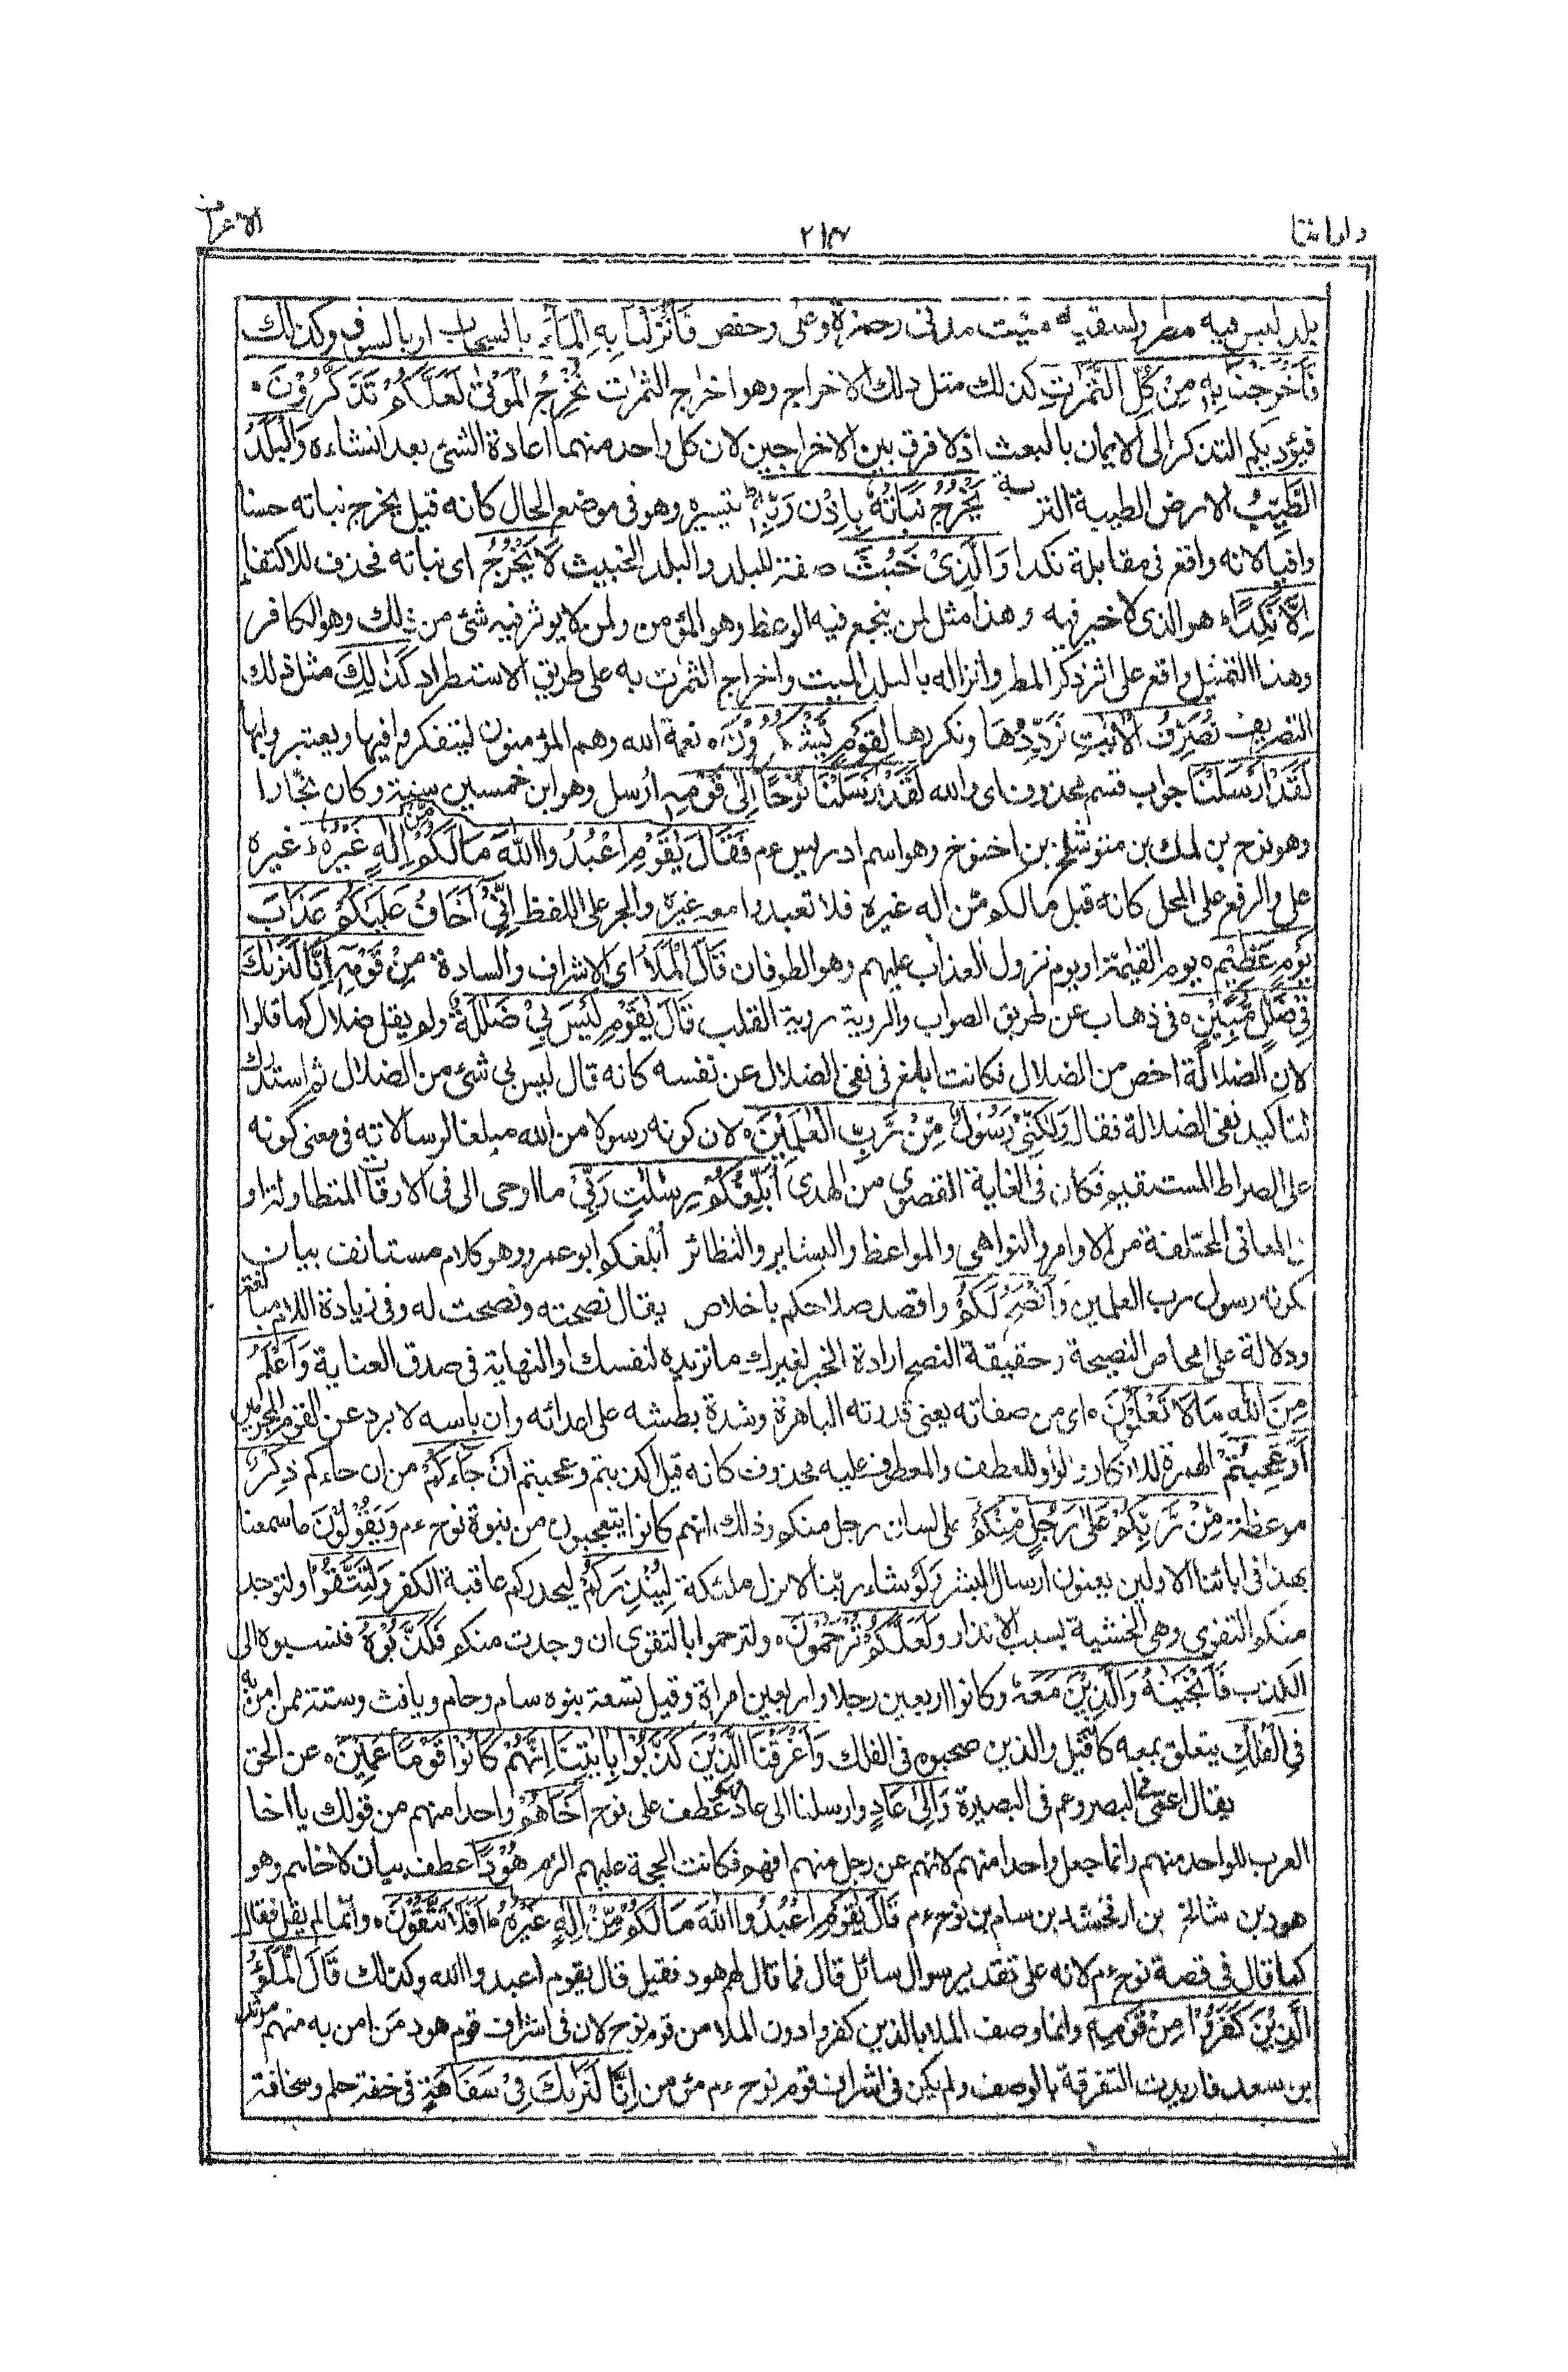 ولواننا ٢١٤ الاعراف
بلد ليس فيه مطر ولسقيه ميت مدنى وحمزة وعلى وحفص فَاَنْزَلْنَا بِهِ الْمَآءَ بالسحاب او بالسوق وكذلك
فَاَخْرَجْنَا بِهٖ مِنْ كُلِّ الثَّمَرٰتِ كذلك مثل ذلك الاخراج وهو اخراج الثمرت نُخْرِجُ الْمَوْتٰى لَعَلَّكُمْ تَذَكَّرُوْنَ
فيؤديكم التذكر الى الايمان بالبعث اذ لا فرق بين الاخراجين لان كل واحد منهما اعادة الشئ بعد انشاءه وَالْبَلَدُ
الطَّيِّبُ الارض الطيبة التربة يَخْرُجُ نَبَاتُهٗ بِاِذْنِ رَبِّهٖ بتيسيره وهو فى موضع الحال كانه قيل يخرج نباته حسنا
وافيا لانه واقع فى مقابلة نكدا وَالَّذِىْ خَبُثَ صفة للبلد والبلد الخبيث لَا يَخْرُجُ اى نباته فحذف للاكتفاء
اِلَّا نَكِدًا هو الذى لا خير فيه وهذا مثل لمن ينجع فيه الوعظ وهو المؤمن ولمن لا يوثر فيه شئ من ذلك وهو الكافر
وهذا التمثيل واقع على اثر ذكر المطر وانزاله بالبلد الميت واخراج الثمرت به على طريق الاستطراد كَذٰلِكَ مثل ذلك
التصريف نُصَرِّفُ الْاٰيٰتِ نرددها ونكررها لِقَوْمٍ يَّشْكُرُوْنَ نعمة الله وهم المؤمنون ليتفكروا فيها ويعتبروا بها
لَقَدْ اَرْسَلْنَا جواب قسم محذوف اى والله لَقَدْ اَرْسَلْنَا نُوْحًا اِلٰى قَوْمِهٖ ارسل وهو ابن خمسين سنة وكان نجارا
وهو نوح بن لمك بن متوشلخ بن اخنوخ وهو اسم ادريس عم فَقَالَ يٰقَوْمِ اعْبُدُوا اللّٰهَ مَا لَكُمْ مِّنْ اِلٰهٍ غَيْرُهٗ غيره
على والرفع على المحل كانه قيل مالكم من اله غيره فلا تعبدوا معه غيره والجر على اللفظ اِنِّىْ اَخَافُ عَلَيْكُمْ عَذَابَ
يَوْمٍ عَظِيْمٍ يوم القيمة او يوم نزول العذاب عليهم وهو الطوفان قَالَ الْمَلَاُ اى الاشراف والسادة مِنْ قَوْمِهٖٓ اِنَّا لَنَرٰىكَ
فِىْ ضَلٰلٍ مُّبِيْنٍ فى ذهاب عن طريق الصواب والروية روية القلب قَالَ يٰقَوْمِ لَيْسَ بِىْ ضَلٰلَةٌ ولم يقل ضلال كما قالوا
لان الضلالة اخص من الضلال فكانت ابلغ فى نفى الضلال عن نفسه كانه قال ليس بى شئ من الضلال ثم استدرك
لتاكيد نفى الضلالة فقال وَلٰكِنِّىْ رَسُوْلٌ مِّنْ رَّبِّ الْعٰلَمِيْنَ لان كونه رسولا من الله مبلغا لرسالاته فى معنى كونه
على الصراط المستقيم فكان فى الغاية القصوى من الهدى اُبَلِّغُكُمْ رِسٰلٰتِ رَبِّىْ ما اوحى الى فى الاوقات المتطاولة او
فى المعانى المختلفة من الاوامر والنواهى والمواعظ والبشاير والنظائر اُبْلِغكم ابو عمرو وهو كلام مستانف بيان
لكونه رسول رب العلمين وَاَنْصَحُ لَكُمْ واقصد صلاحكم باخلاص يقال نصحته ونصحت له وفى زيادة اللام مبالغة
ودلالة على امحاض النصيحة وحقيقة النصح ارادة الخير لغيرك ما تريده لنفسك او النهاية فى صدق العناية وَاَعْلَمُ
مِنَ اللّٰهِ مَا لَا تَعْلَمُوْنَ اى من صفاته يعنى قدرته الباهرة وشدة بطشه على اعدائه وان باسه لا يرد عن القوم المجرمين
اَوَعَجِبْتُمْ الهمزة للانكار والواو للعطف والمعطوف عليه محذوف كانه قيل اكذبتم وعجبتم اَنْ جَآءَكُمْ من ان جاءكم ذِكْرٌ
موعظة مِّنْ رَّبِّكُمْ عَلٰى رَجُلٍ مِّنْكُمْ على لسان رجل منكم وذلك انهم كانوا يتعجبون من نبوة نوح عم وَيَقُوْلُوْنَ ما سمعنا
بهذا فى ابائنا الاولين يعنون ارسال البشر وَلَوْ شاء ربنا لانزل ملئكة لِيُنْذِرَكُمْ ليحذركم عاقبة الكفر وَلِتَتَّقُوْا ولتوجد
منكم التقوى وهى الخشية بسبب الانذار وَلَعَلَّكُمْ تُرْحَمُوْنَ ولترحموا بالتقوى ان وجدت منكم فَكَذَّبُوْهُ فنسبوه الى
الكذب فَاَنْجَيْنٰهُ وَالَّذِيْنَ مَعَهٗ وكانوا اربعين رجلا واربعين امراة وقيل تسعة بنوه سام وحام ويافث وستة ممن امن به
فِى الْفُلْكِ يتعلق بمعه كانه قيل والذين صحبوه فى الفلك وَاَغْرَقْنَا الَّذِيْنَ كَذَّبُوْا بِاٰيٰتِنَا اِنَّهُمْ كَانُوْا قَوْمًا عَمِيْنَ عن الحق
يقال اعمى فى البصر وعم فى البصيرة وَاِلٰى عَادٍ وارسلنا الى عاد عطف على نوح اَخَاهُمْ واحدا منهم من قولك يا اخا
العرب للواحد منهم وانما جعل واحدا منهم لانهم عن رجل منهم افهم فكانت الحجة عليهم الزم هُوْدًا عطف بيان لاخاهم وهو
هود بن شالخ بن ارفخشد بن سام بن نوح عم قَالَ يٰقَوْمِ اعْبُدُوا اللّٰهَ مَا لَكُمْ مِّنْ اِلٰهٍ غَيْرُهٗ اَفَلَا تَتَّقُوْنَ وانما لم يقل فقال
كما قال فى قصة نوح عم لانه على تقدير سوال سائل قال فما قال لهم هود فقيل قال يقوم اعبدوا الله وكذلك قَالَ الْمَلَاُ
الَّذِيْنَ كَفَرُوْا مِنْ قَوْمِهٖ وانما وصف الملا بالذين كفروا دون الملا من قوم نوح لان فى اشراف قوم هود من امن به منهم مرثد
بن سعد فاريدت التفرقة بالوصف ولم يكن فى اشراف قوم نوح عم مؤمن اِنَّا لَنَرٰىكَ فِىْ سَفَاهَةٍ فى خفة حلم وسخافة